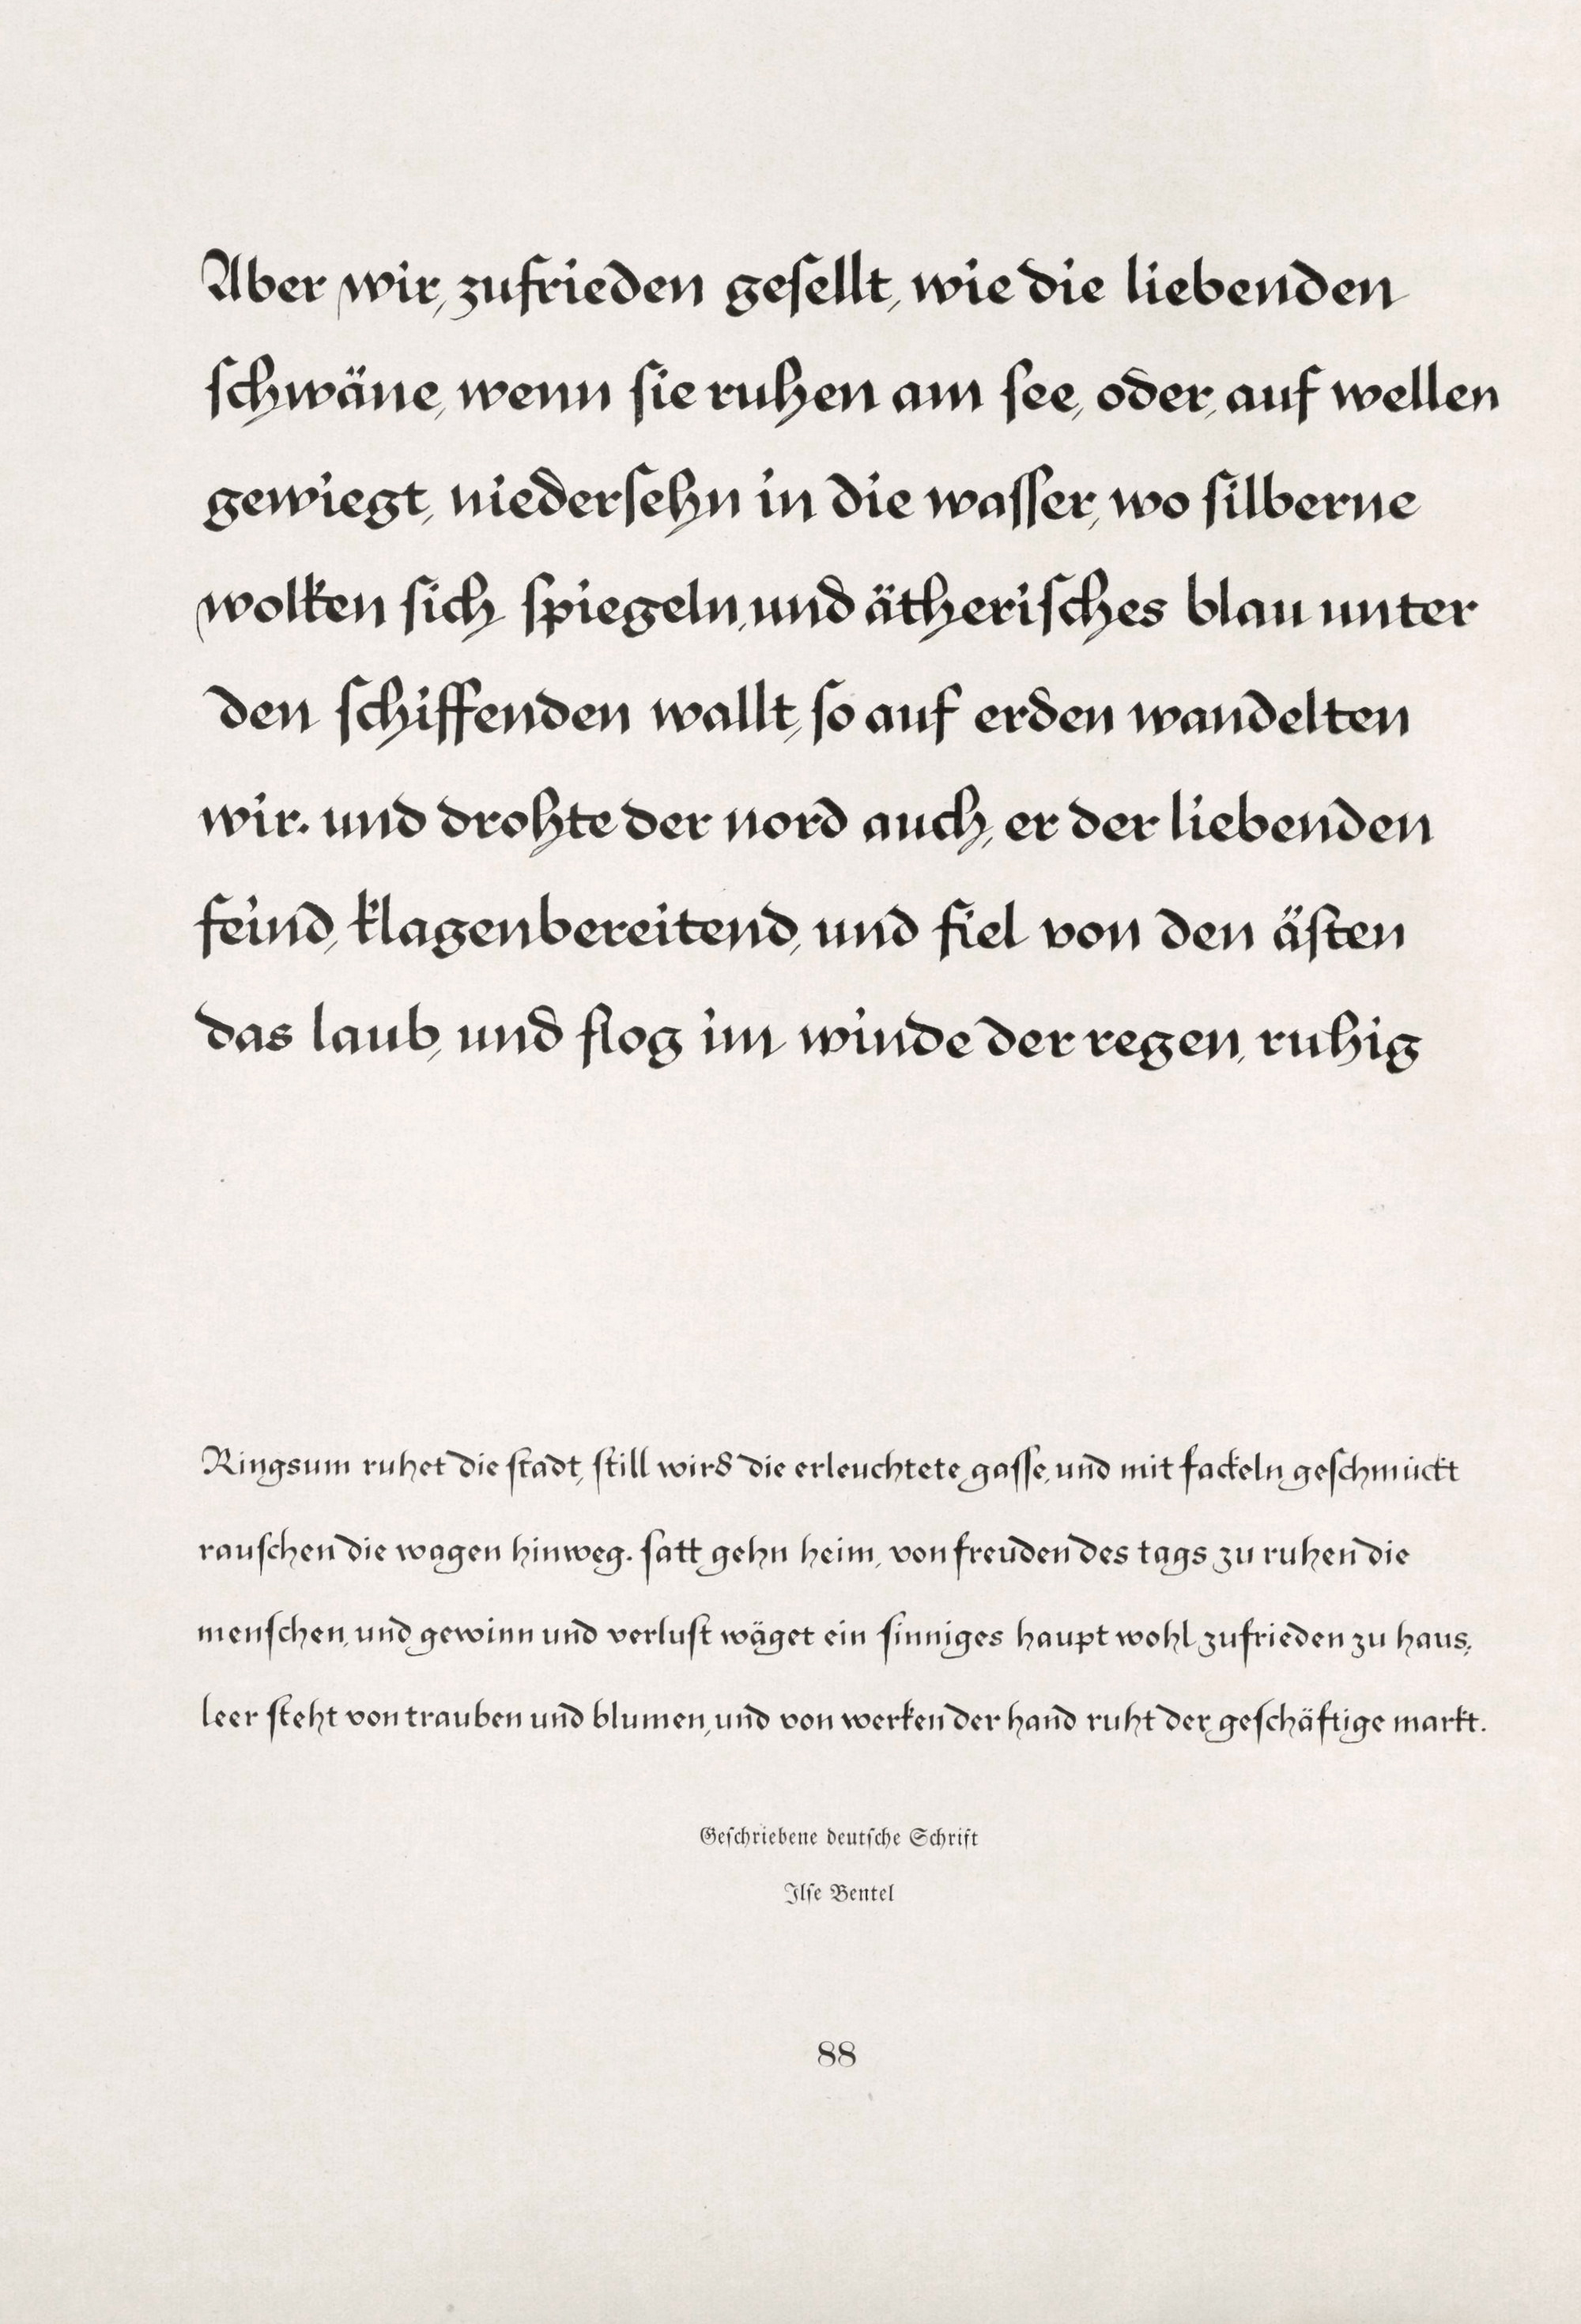 Aber wir, zufrieden geſellt, wie die liebenden
ſchwäne, wenn ſie ruhen am ſee, oder, auf wellen
gewiegt, niederſehn in die waſſer, wo ſilberne
wolken ſich ſpiegeln, und ätheriſches blau unter
den ſchiffenden wallt, ſo auf erden wandelten
wir. und drohte der nord auch, er der liebenden
feind, klagenbereitend, und fiel von den äſten
das laub, und flog im winde der regen, ruhig
Ringsum ruhet die ſtadt, ſtill wird die erleuchtete gaſſe, und mit fackeln geſchmückt
rauſchen die wagen hinweg. ſatt gehn heim, von freuden des tags zu ruhen die
menſchen, und gewinn und verluſt wäget ein ſinniges haupt wohl zufrieden zu haus;
leer ſteht von trauben und blumen, und von werken der hand ruht der geſchäftige markt.
Geſchriebene deutſche Schrift
Ilſe Bentel
88